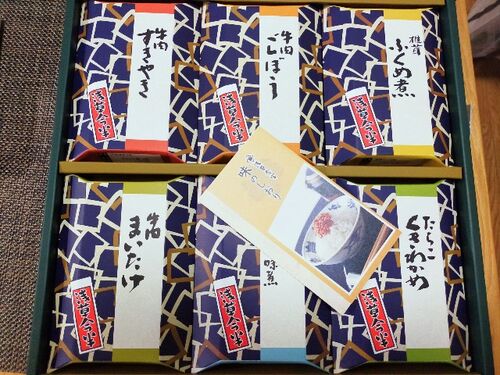 牛肉
すきやき
浅草今半
牛肉
ごんぼう
浅草今半
椎茸
ふくめ煮
浅草今半
牛肉
まいたけ
浅草今半
味煮
浅草今半
味のしおり
たらこ
くきわかめ
浅草今半